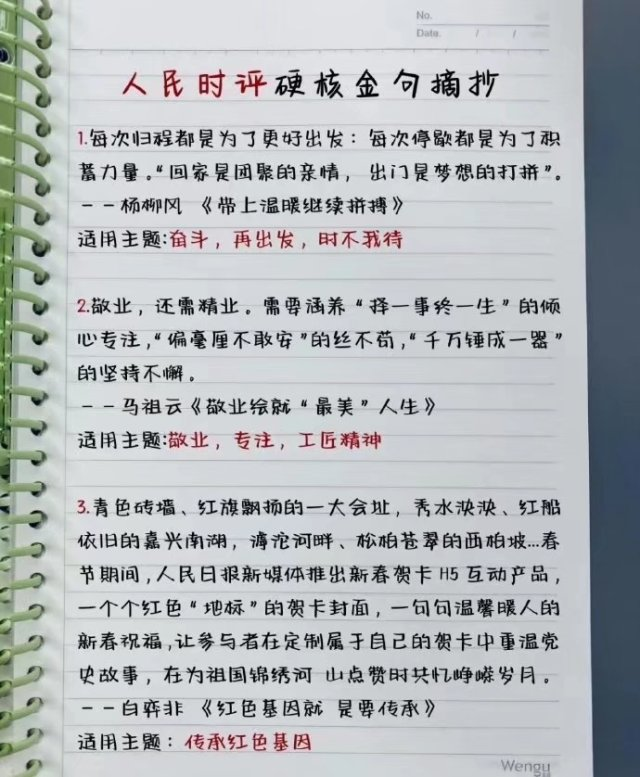 No.
Date. / /
人民时评硬核金句摘抄
1.每次归程都是为了更好出发：每次停歇都是为了积
蓄力量。“回家是团聚的亲情，出门是梦想的打拼”。
--杨柳风《带上温暖继续拼搏》
适用主题:奋斗，再出发，时不我待
2.敬业，还需精业。需要涵养“择一事终一生”的倾
心专注，“偏毫厘不敢安”的丝不苟，“千万锤成一器”
的坚持不懈。
--马祖云《敬业绘就“最美”人生》
适用主题:敬业，专注，工匠精神
3.青色砖墙、红旗飘扬的一大会址，秀水泱泱、红船
依旧的嘉兴南湖，滹沱河畔、松柏苍翠的西柏坡...春
节期间，人民日报新媒体推出新春贺卡H5互动产品，
一个个红色“地标”的贺卡封面，一句句温馨暖人的
新春祝福，让参与者在定制属于自己的贺卡中重温党
史故事，在为祖国锦绣河 山点赞时共忆峥嵘岁月。
--白弈非 《红色基因就 是要传承》
适用主题：传承红色基因
Wengu